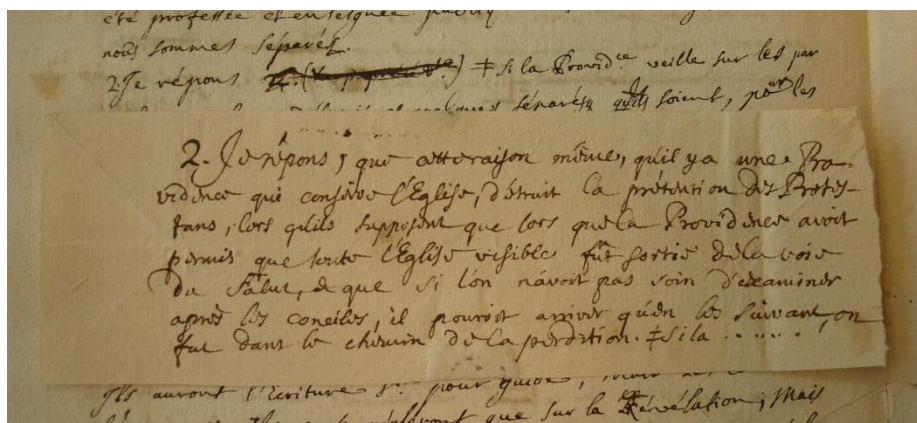 été professée et enseignée
nous sommes séparés.
2. Je répons ‡ si la Provid.ce veille sur les par
séparés qu'ils soient, pour les
2. Je répons, que cette raison même, qu'il y a une Pro-
vidence qui conserve l'Eglise, détruit la prétention des Protes-
tans, lors qu'ils supposent que lors que la Providence avoit
permis que toute l'Eglise visible fût sortie de la voie
du Salut, & que si l'on n'avoit pas soin d'examiner
après les conciles, il pourroit arriver qu'en les suivant, on
fut dans le chemin de la perdition. ‡ si la ......
Ils auront l'Ecriture Ste. pour guide,
que sur la Révélation; Mais